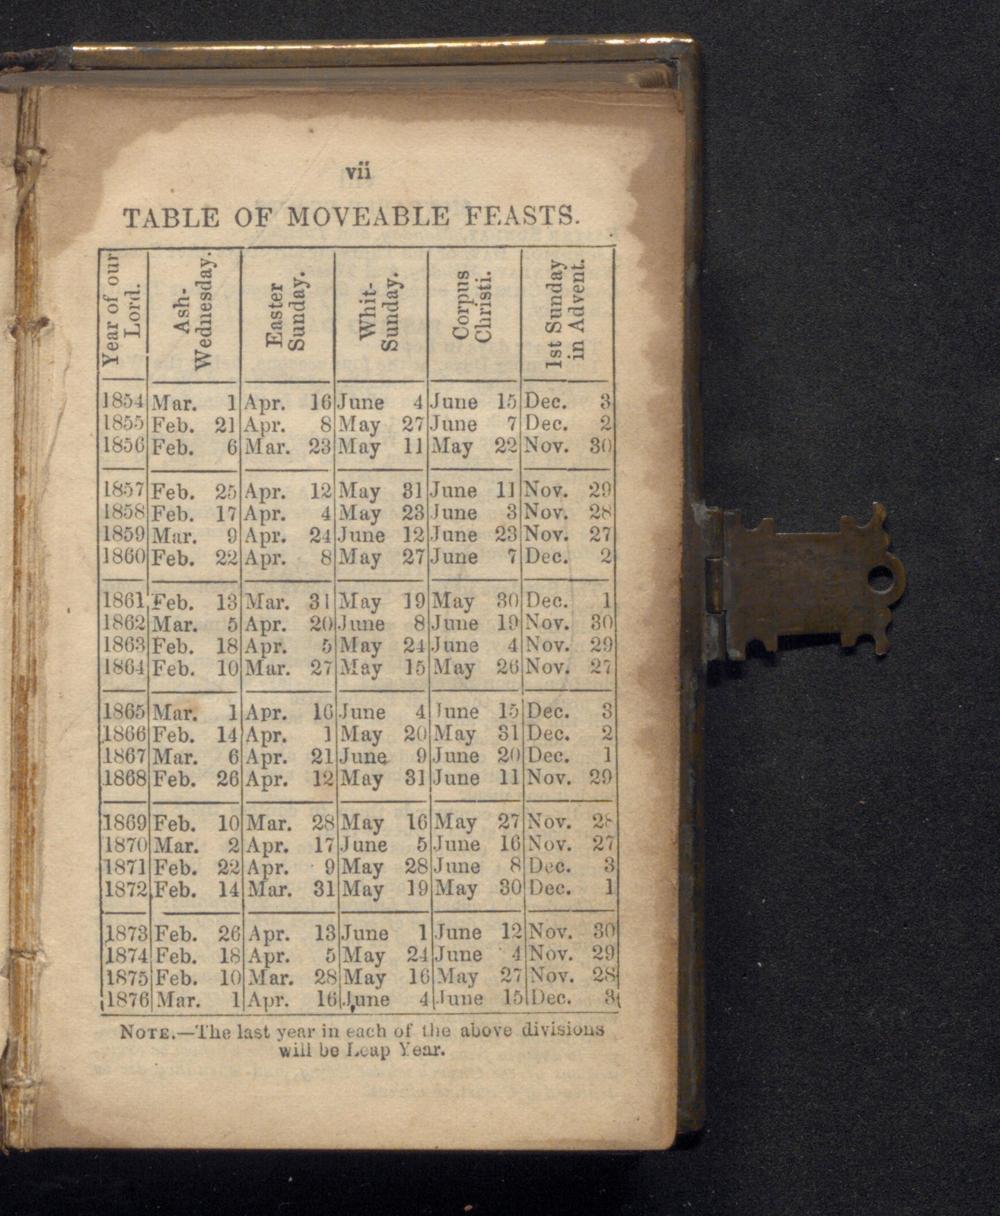 vii
TABLE OF MOVEABLE FEASTS.
Year of our Lord. Ash-Wednesday. Easter Sunday. Whit-Sunday. Corpus Christi. 1st Sunday in Advent.
1854 Mar. 1 Apr. 16 June 4 June 15 Dec. 3
1855 Feb. 21 Apr. 8 May 27 June 7 Dec. 2
1856 Feb. 6 Mar. 23 May 11 May 22 Nov. 30
1857 Feb. 25 Apr. 12 May 31 June 11 Nov. 29
1858 Feb. 17 Apr. 4 May 23 June 3 Nov. 28
1859 Mar. 9 Apr. 24 June 12 June 23 Nov. 27
1860 Feb. 22 Apr. 8 May 27 June 7 Dec. 2
1861 Feb. 13 Mar. 31 May 19 May 30 Dec. 1
1862 Mar. 5 Apr. 20 June 8 June 19 Nov. 30
1863 Feb. 18 Apr. 5 May 24 June 4 Nov. 29
1864 Feb. 10 Mar. 27 May 15 May 26 Nov. 27
1865 Mar. 1 Apr. 16 June 4 June 15 Dec. 3
1866 Feb. 14 Apr. 1 May 20 May 31 Dec. 2
1867 Mar. 6 Apr. 21 June 9 June 20 Dec. 1
1868 Feb. 26 Apr. 12 May 31 June 11 Nov. 29
1869 Feb. 10 Mar. 28 May 16 May 27 Nov. 28
1870 Mar. 2 Apr. 17 June 5 June 16 Nov. 27
1871 Feb. 22 Apr. 9 May 28 June 8 Dec. 3
1872 Feb. 14 Mar. 31 May 19 May 30 Dec. 1
1873 Feb. 26 Apr. 13 June 1 June 12 Nov. 30
1874 Feb. 18 Apr. 5 May 24 June 4 Nov. 29
1875 Feb. 10 Mar. 28 May 16 May 27 Nov. 28
1876 Mar. 1 Apr. 16 June 4 June 15 Dec. 3
NOTE.—The last year in each of the above divisions
will be Leap Year.